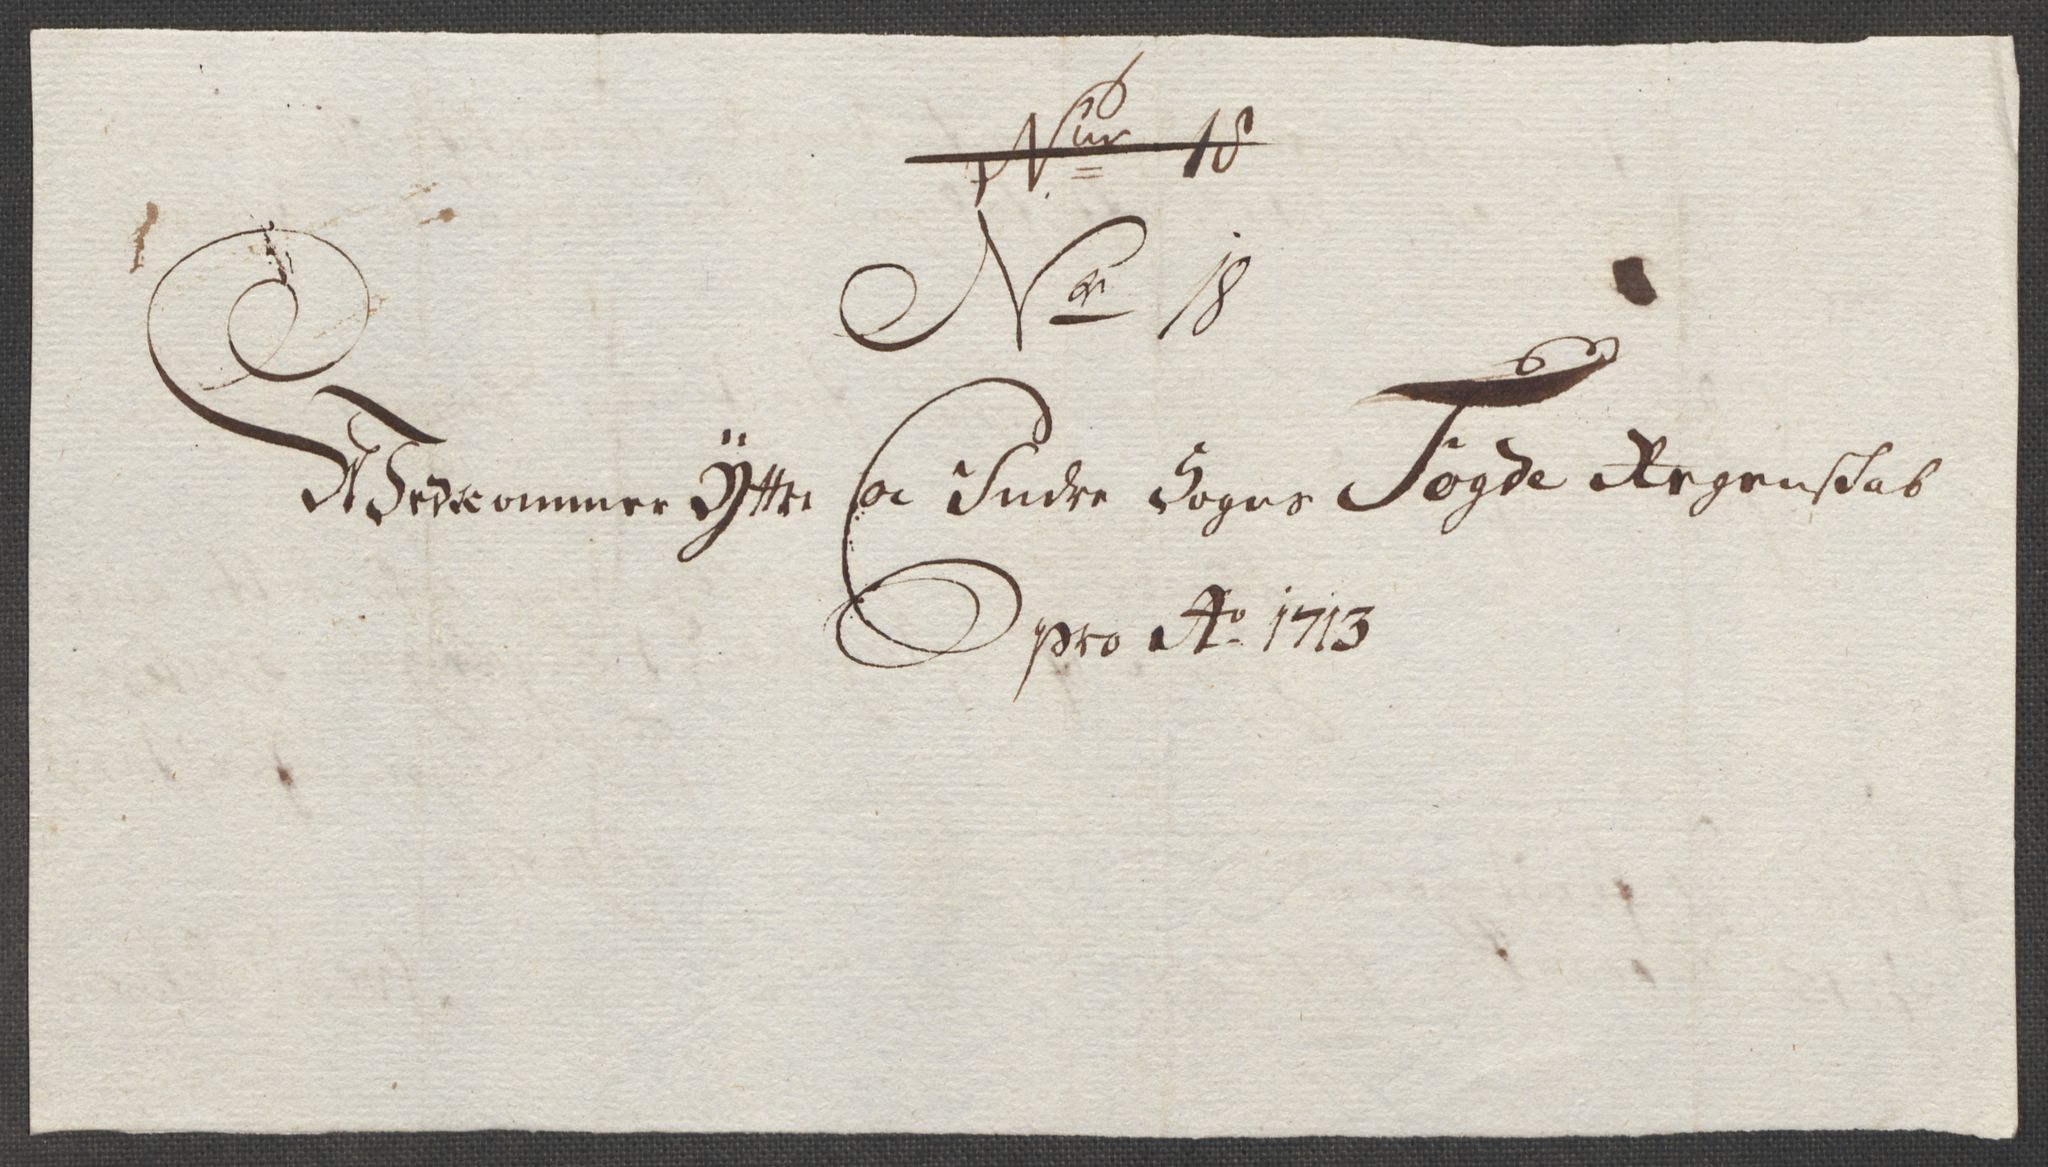 Nur 18
Nr 18
Vedkommer Ÿttre oc Indre Sogns Fogde Regenskab
pro Ao 1713